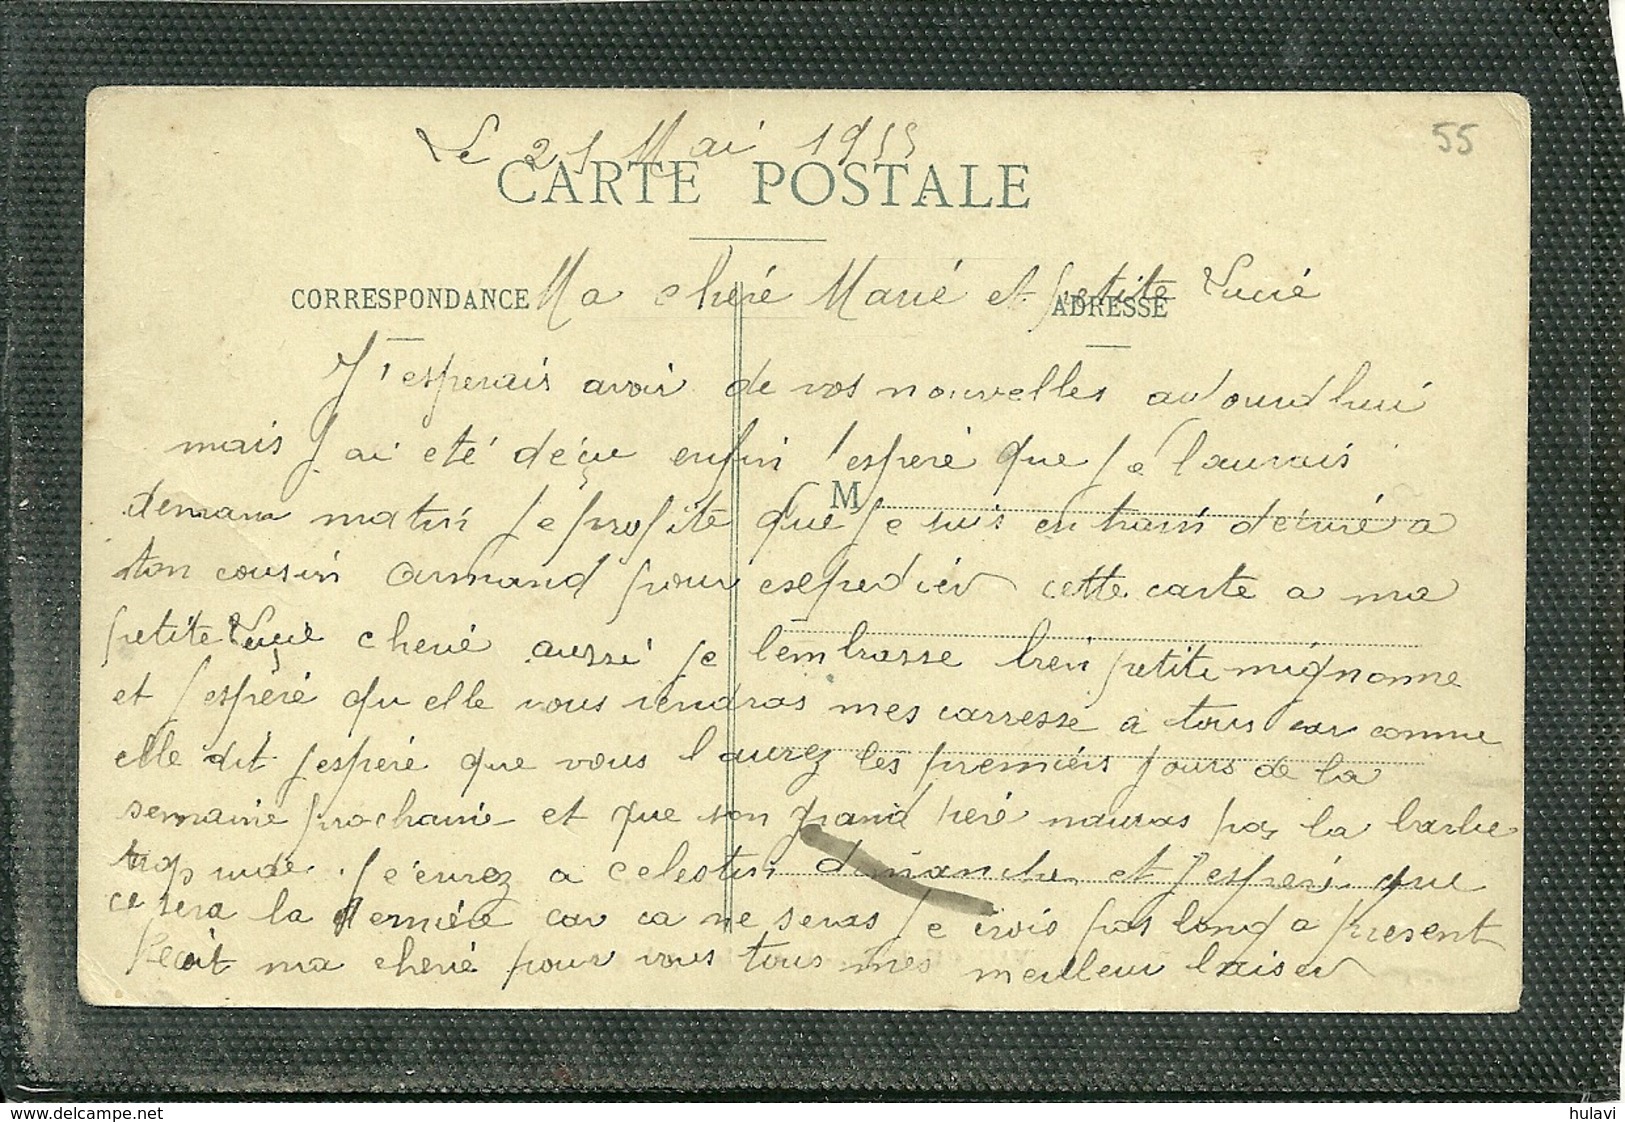 Le 21 Mai 1915
55
CARTE POSTALE
CORRESPONDANCE
ADRESSE
Ma cheré Marié et petite Lucié
J'esperais avoir de vos nouvelles
mais J ai eté déçu enfin J'esperé que Je l'aurais
demain matin Je profite que Je suis en train décriré a
M
ton cousin Armand pour esepedier cette carte a ma
petite Lucié cherié aussi je l'embrasse bien petite mignonne
et J'espéré qu elle vous rendras mes carresse a tous car comme
elle dit J'espéré que vous l'aurez les premiérs jours de la
semainé prochainé et que son grand peré nauras pas la barbe
trop rude. Je celestin dimanche et J'esperé que
ce sera la derniéré car ca ne seras Je crois pas long a present
Recoit ma cherié pour vous tous mes meilleur baiser
hulavi
www.delcampe.net